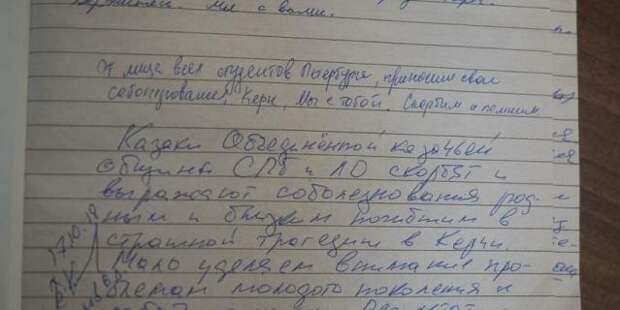 Мы с вами.
От лица всех студентов Петербурга, приносим свои
соболезнования, Керчь, Мы с тобой. Скорбим и помним.
Казаки Объединённой казачьей
общины СПб и ЛО скорбят и
выражают соболезнования род-
ным и близким погибшим в
страшной трагедии в Керчи.
Мало уделяем внимание про-
блемам молодого поколения и
17.10.18